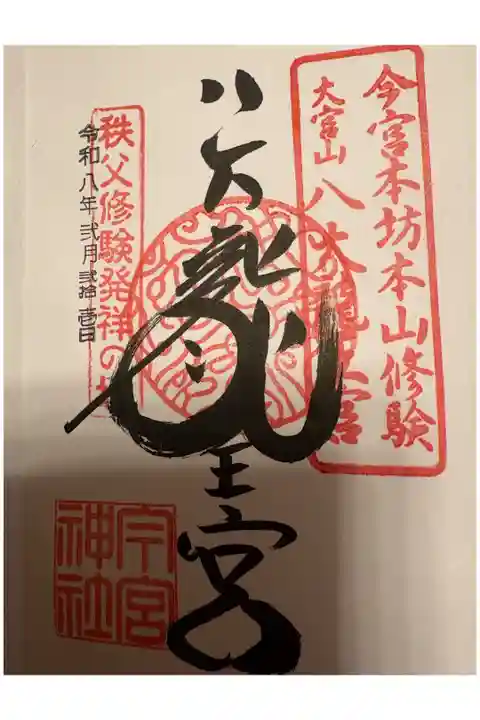 今宮本坊本山修験
大宮山 八大龍王宮
八大龍王宮
秩父修験発祥の
令和八年弐月弐拾壱日
今宮神社